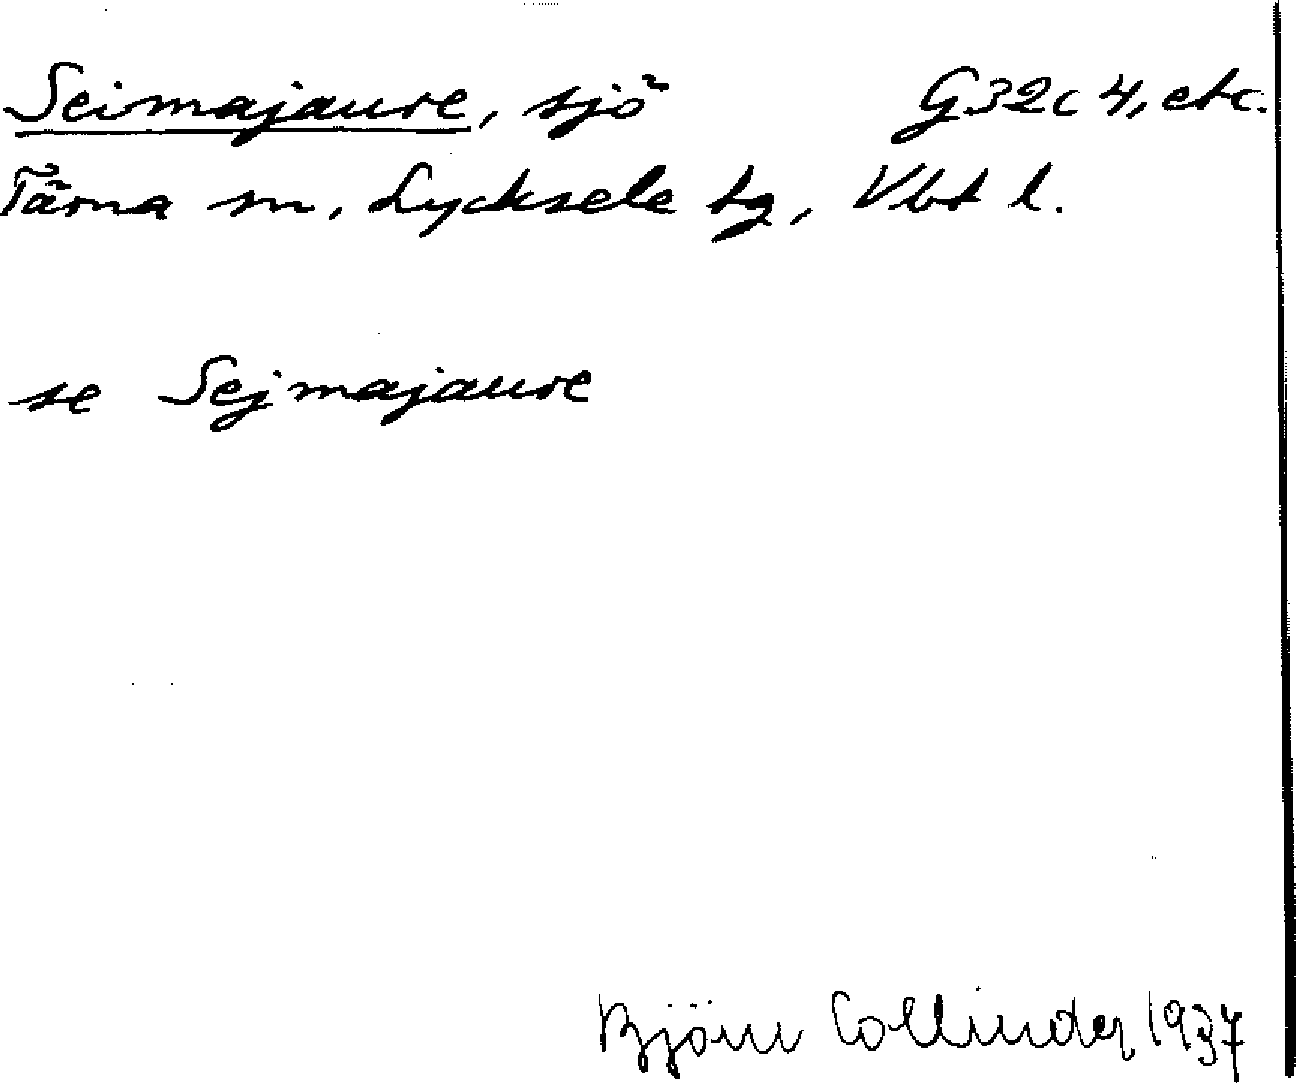 Seimajaure, sjö G32c4, etc.
Tärna sn, Lycksele tg, Vbt l.
se Sejmajaure
Björn Collinder 1937